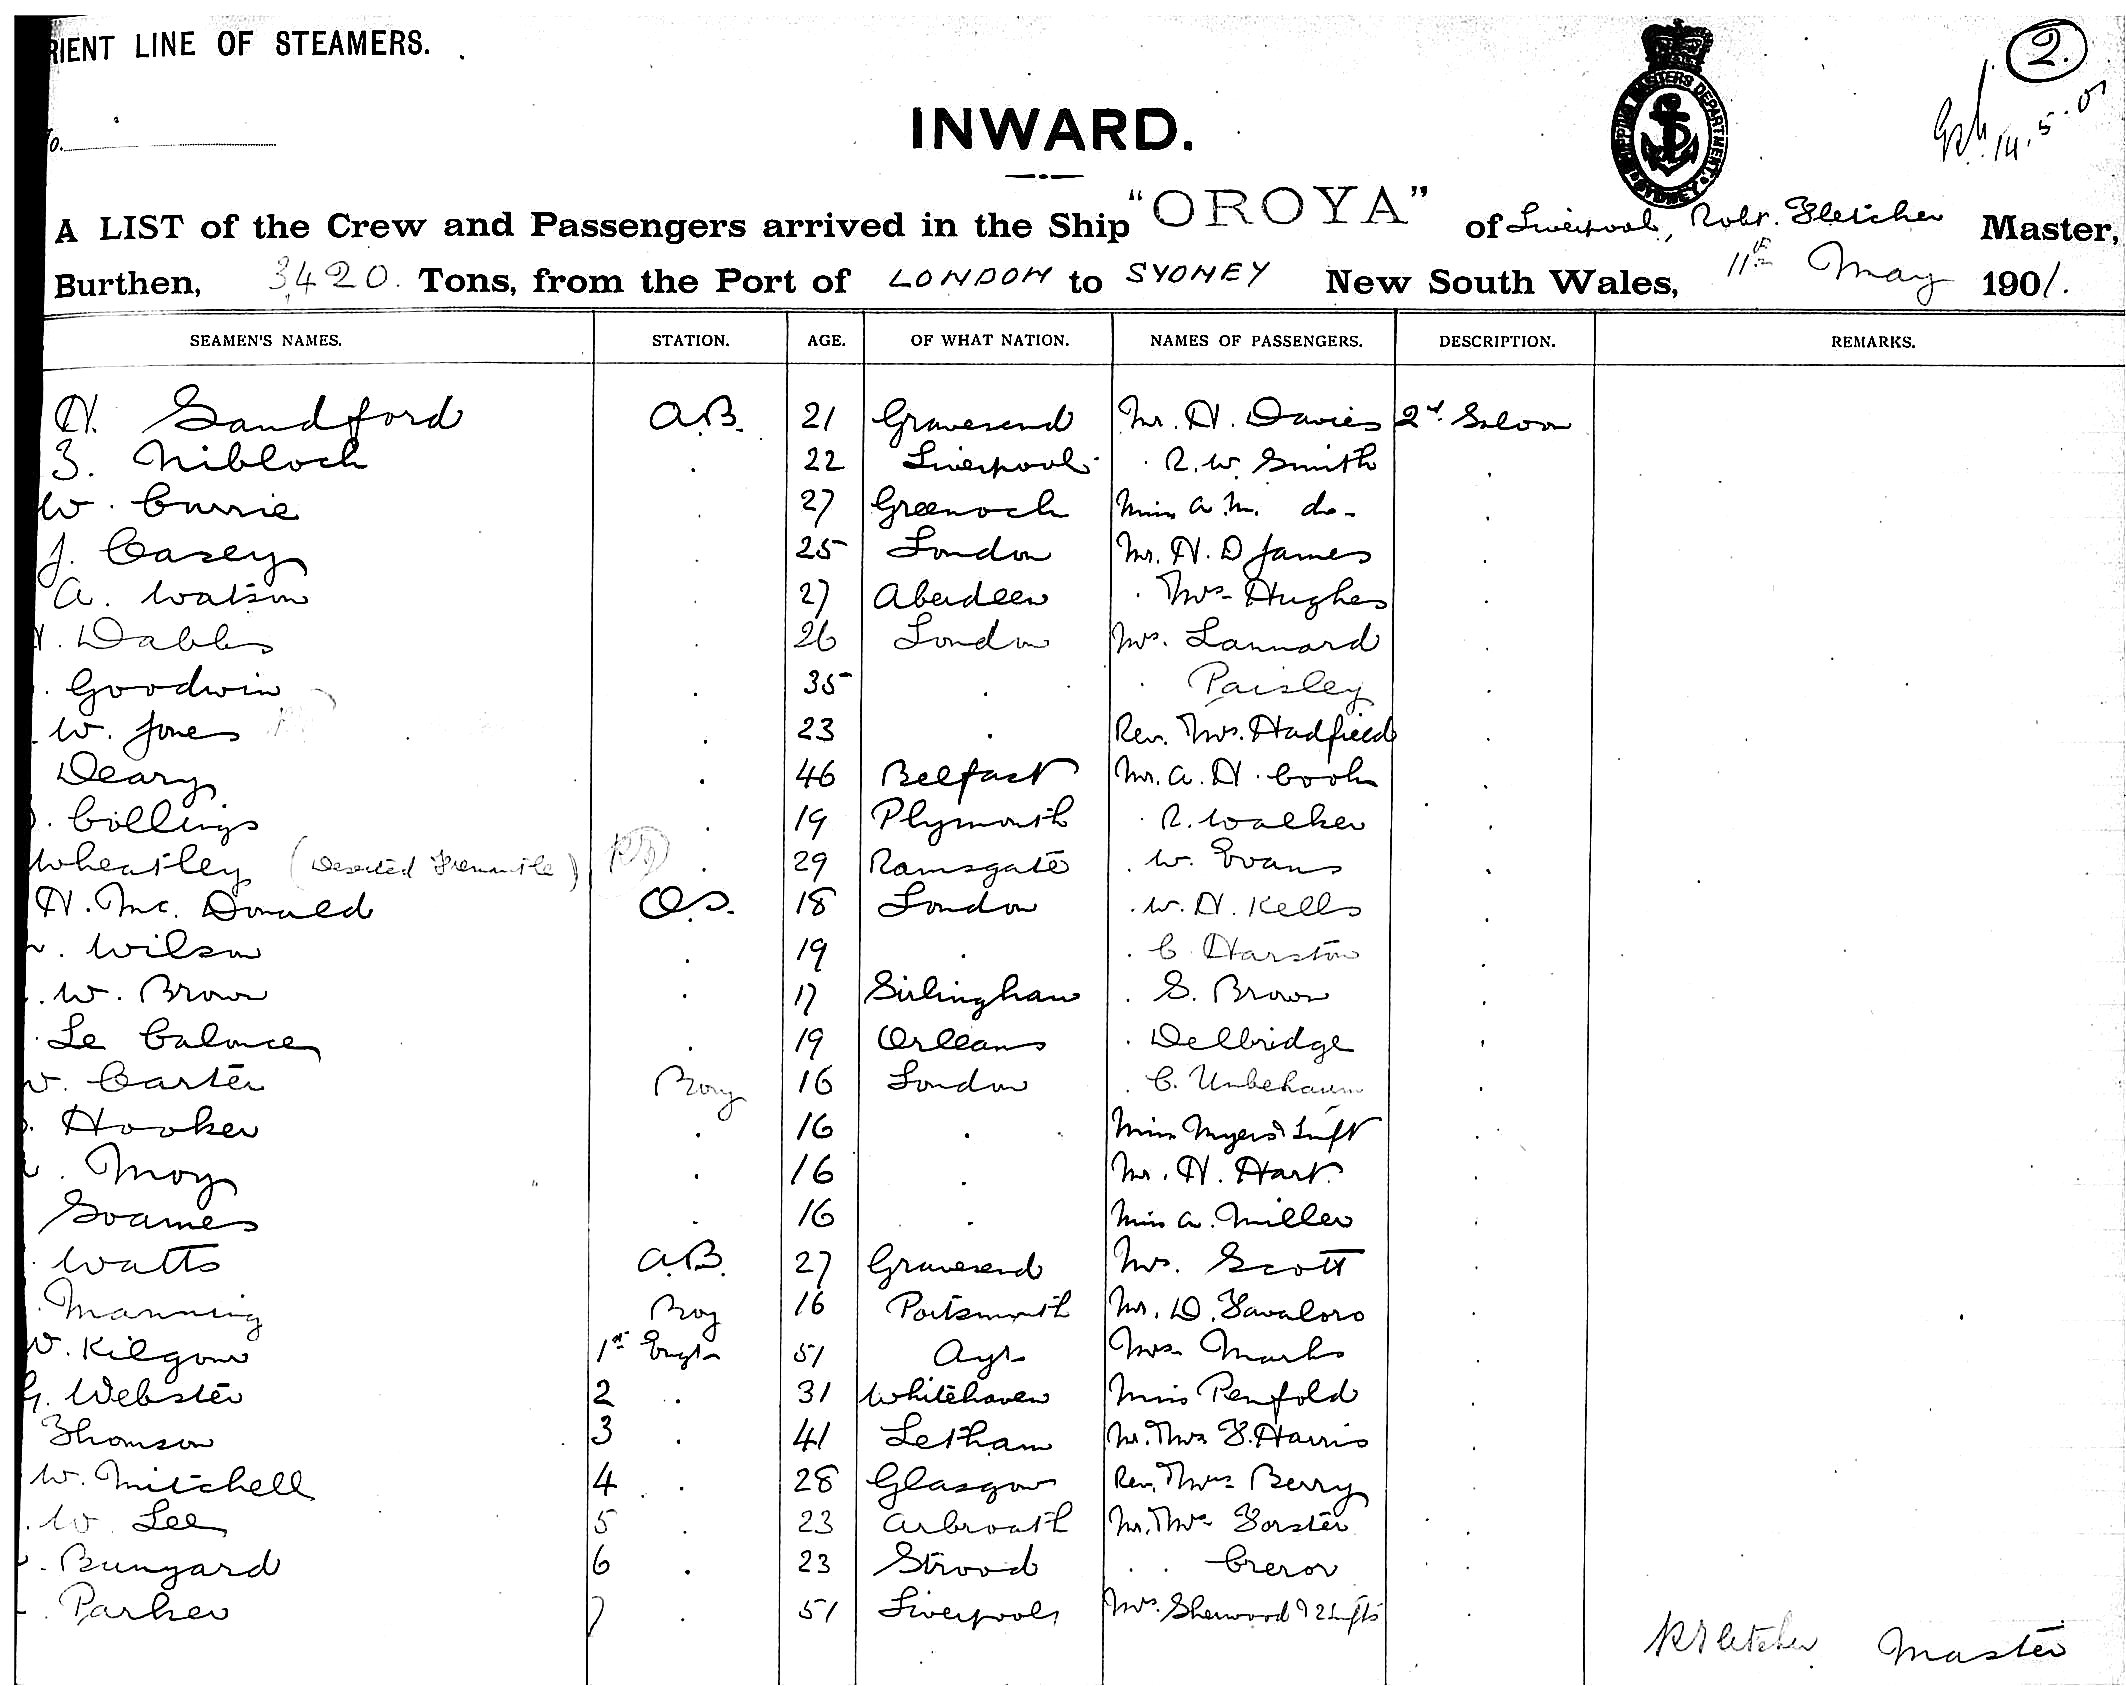 RIENT LINE OF STEAMERS.
2.
14.5.01
o.
INWARD.
SHIPPING MASTERS DEPARTMENT. SYDNEY
A LIST of the Crew and Passengers arrived in the Ship "OROYA" of Liverpool, Robt. Fletcher Master,
Burthen, 3,420. Tons, from the Port of LONDON to SYDNEY New South Wales, 11th May 1901.
SEAMEN'S NAMES. STATION. AGE. OF WHAT NATION. NAMES OF PASSENGERS. DESCRIPTION. REMARKS.
H. Sandford A.B. 21 Gravesend Mr. H. Davies 2d. Saloon
Nibloch . 22 Liverpool . R. W. Smith .
W. Currie . 27 Greenock Miss A. M. do- .
J. Casey . 25 London Mr. H. D James .
A. Watson . 27 Aberdeen . Mrs- Hughes .
. Dabbs . 26 London Mrs. Lannard .
. Goodwin . 35 . . Paisley .
. W. Jones . 23 . Rev. Mrs. Hadfield .
Deary . 46 Belfast Mr. A. H. Cook .
. Collings . 19 Plymouth . R. Walker .
Wheatley (Deserted Fremantle) . 29 Ramsgate . W. Evans .
H. Mc. Donald O.S. 18 London . W. H. Kells .
. Wilson . 19 . . C. Harston .
. W. Brown . 17 . S. Brown .
. Le . 19 Orleans . Delbridge .
W. Carter Boy 16 London . C. Unbehaun .
. Hooker . 16 . Miss Myers & Inft .
. Moy . 16 . Mr. H. Hart .
Soames . 16 . Miss A. Miller .
. Watts A.B. 27 Gravesend Mrs. Scott .
. Manning Boy 16 Portsmouth Mr. D. Favaloro .
W. Kilgour 1st Engr 51 Ayr Mrs Marks .
G. Webster 2 . 31 Whitehaven Miss Penfold .
Thomson 3 . 41 Letham Mr. Mrs F. Harris .
W. Mitchell 4 . 28 Glasgow Rev. Mrs Berry .
. W Lee 5 . 23 Arbroath Mr. Mrs Forster .
. Bunyard 6 . 23 Strood . . Creror .
. Parker 7 . 51 Liverpool Mrs. Sherwood & 2 Infts .
R Fletcher Master